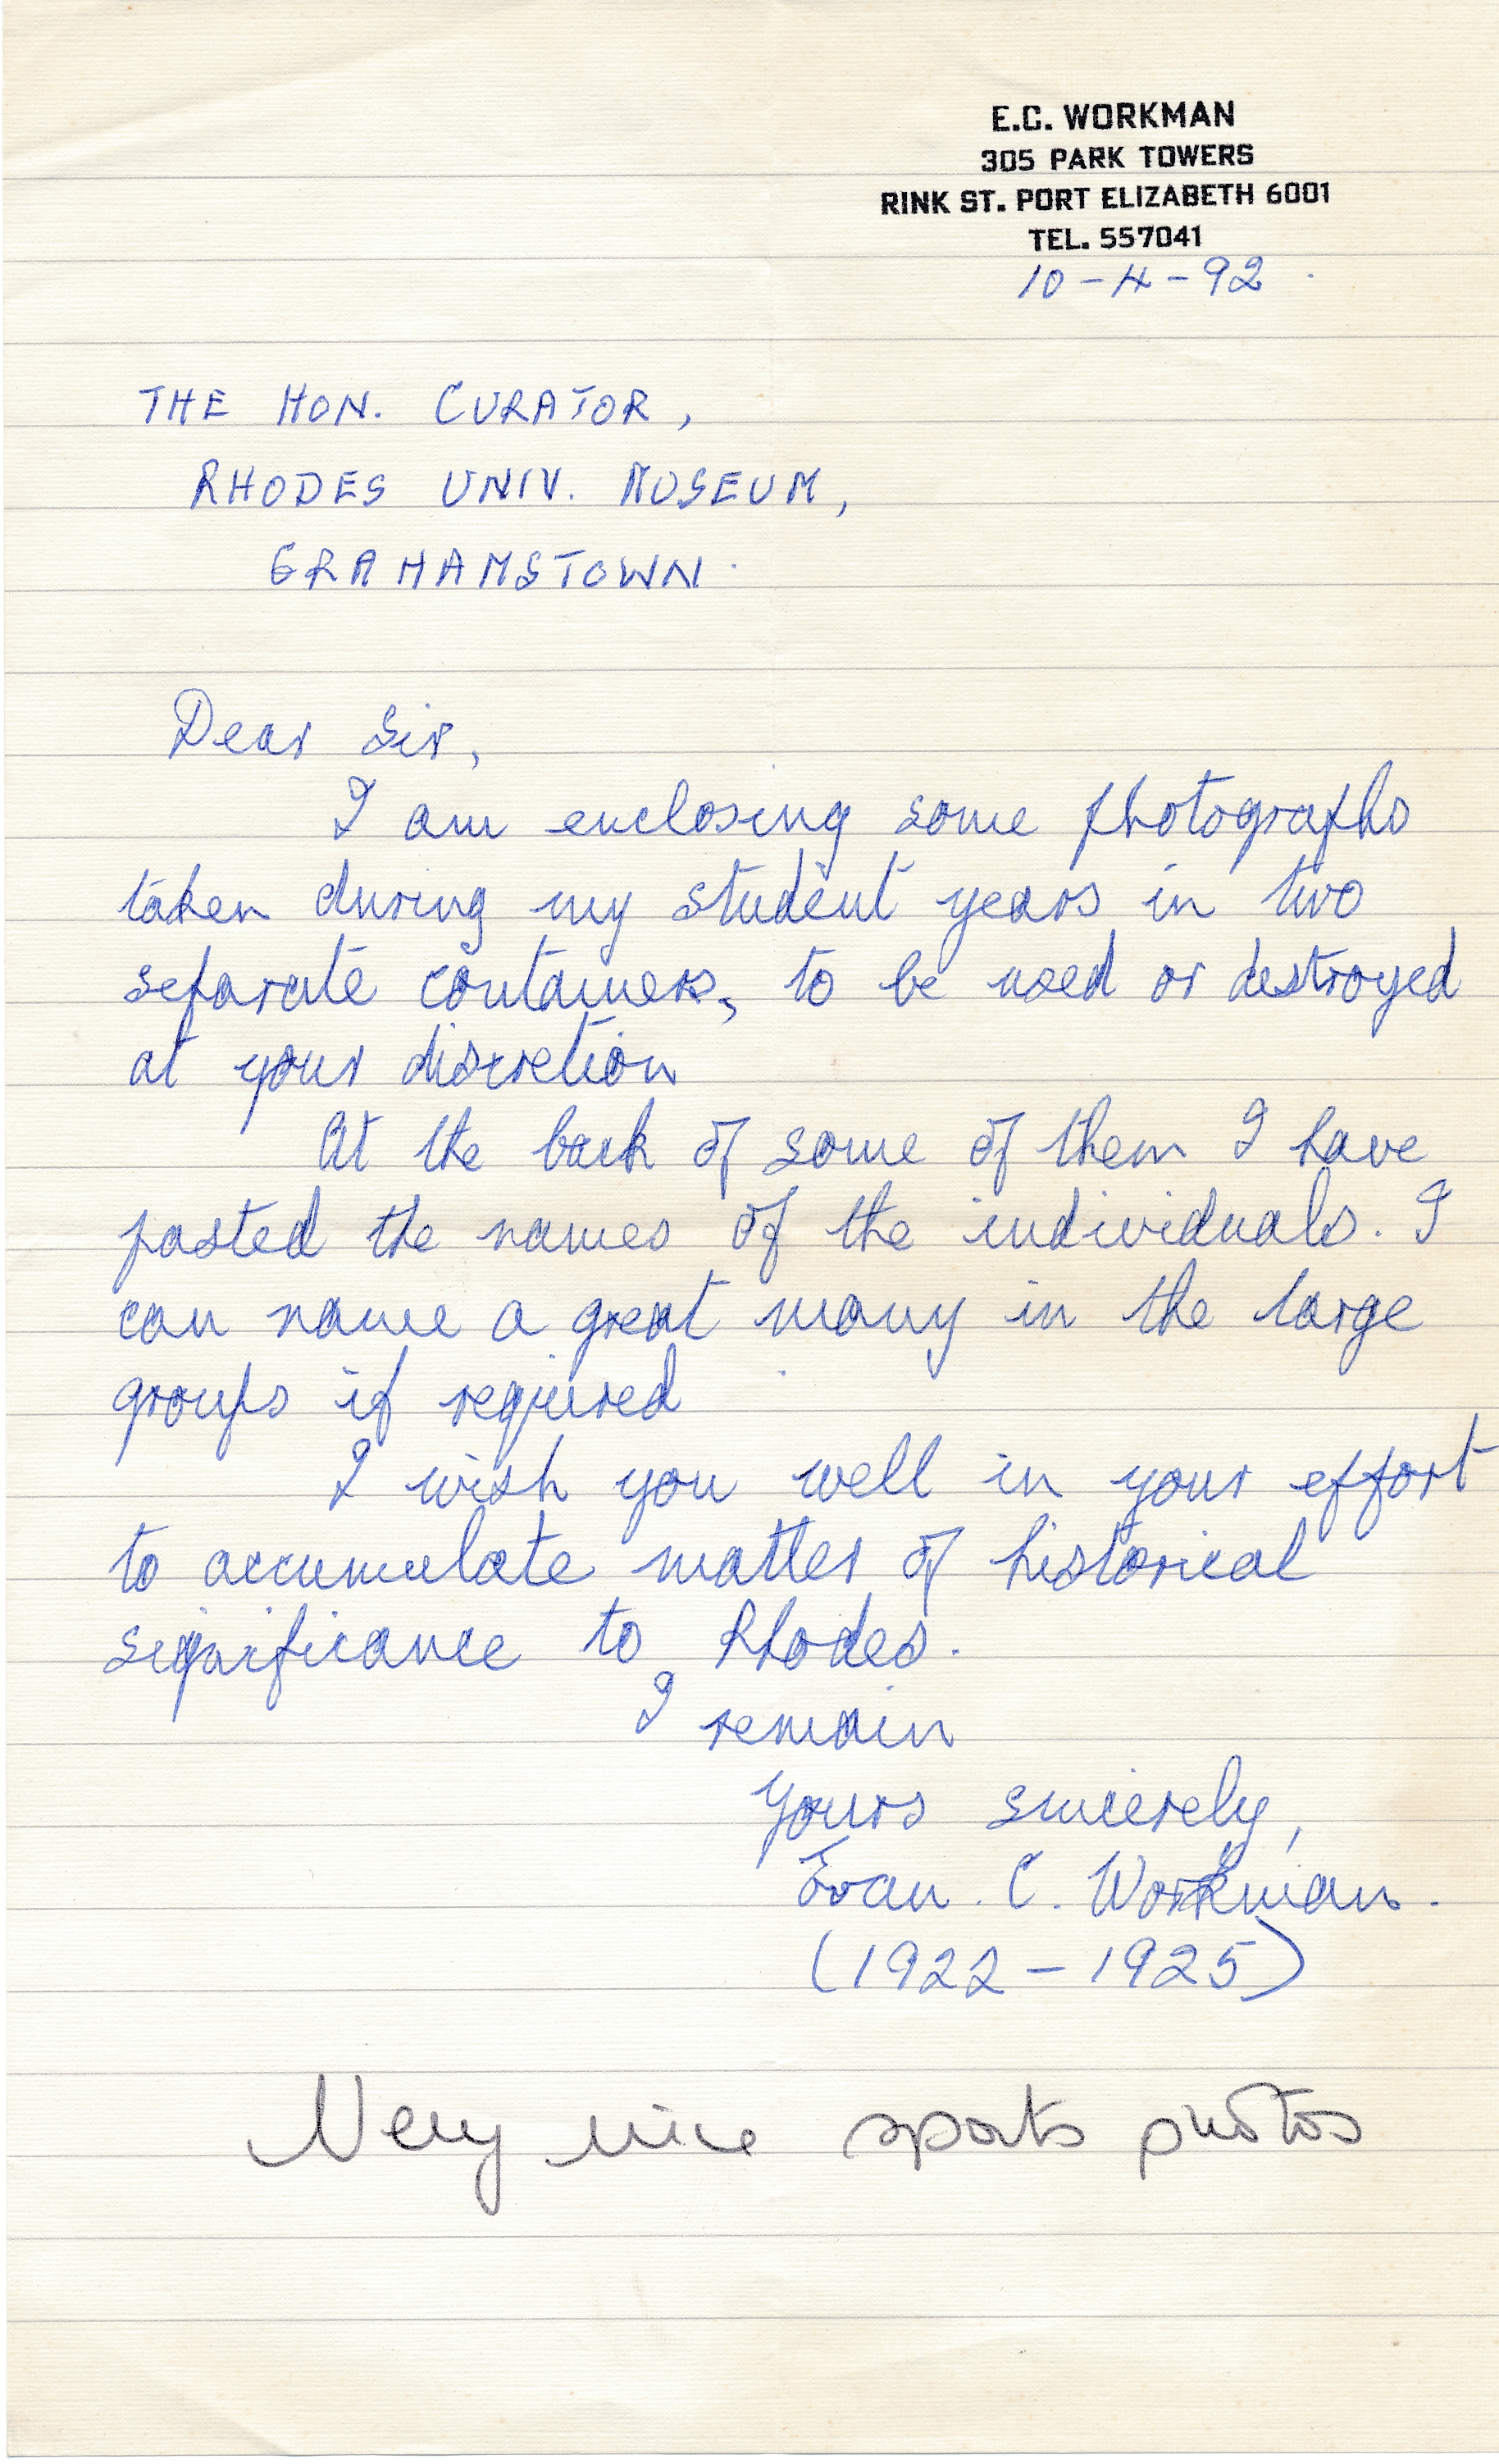 E.C. WORKMAN
305 PARK TOWERS
RINK ST. PORT ELIZABETH 6001
TEL. 557041
10-4-92.
THE HON. CURATOR,
RHODES UNIV. MUSEUM,
GRAHAMSTOWN.
Dear Sir,
I am enclosing some photographs
taken during my student years in two
separate containers, to be used or destroyed
at your discretion
At the back of some of them I have
pasted the names of the individuals. I
can name a great many in the large
groups if required
I wish you well in your effort
to accumulate matter of historical
significance to Rhodes.
I remain
Yours sincerely,
Evan. C. Workman.
(1922-1925)
Very nice sports photos